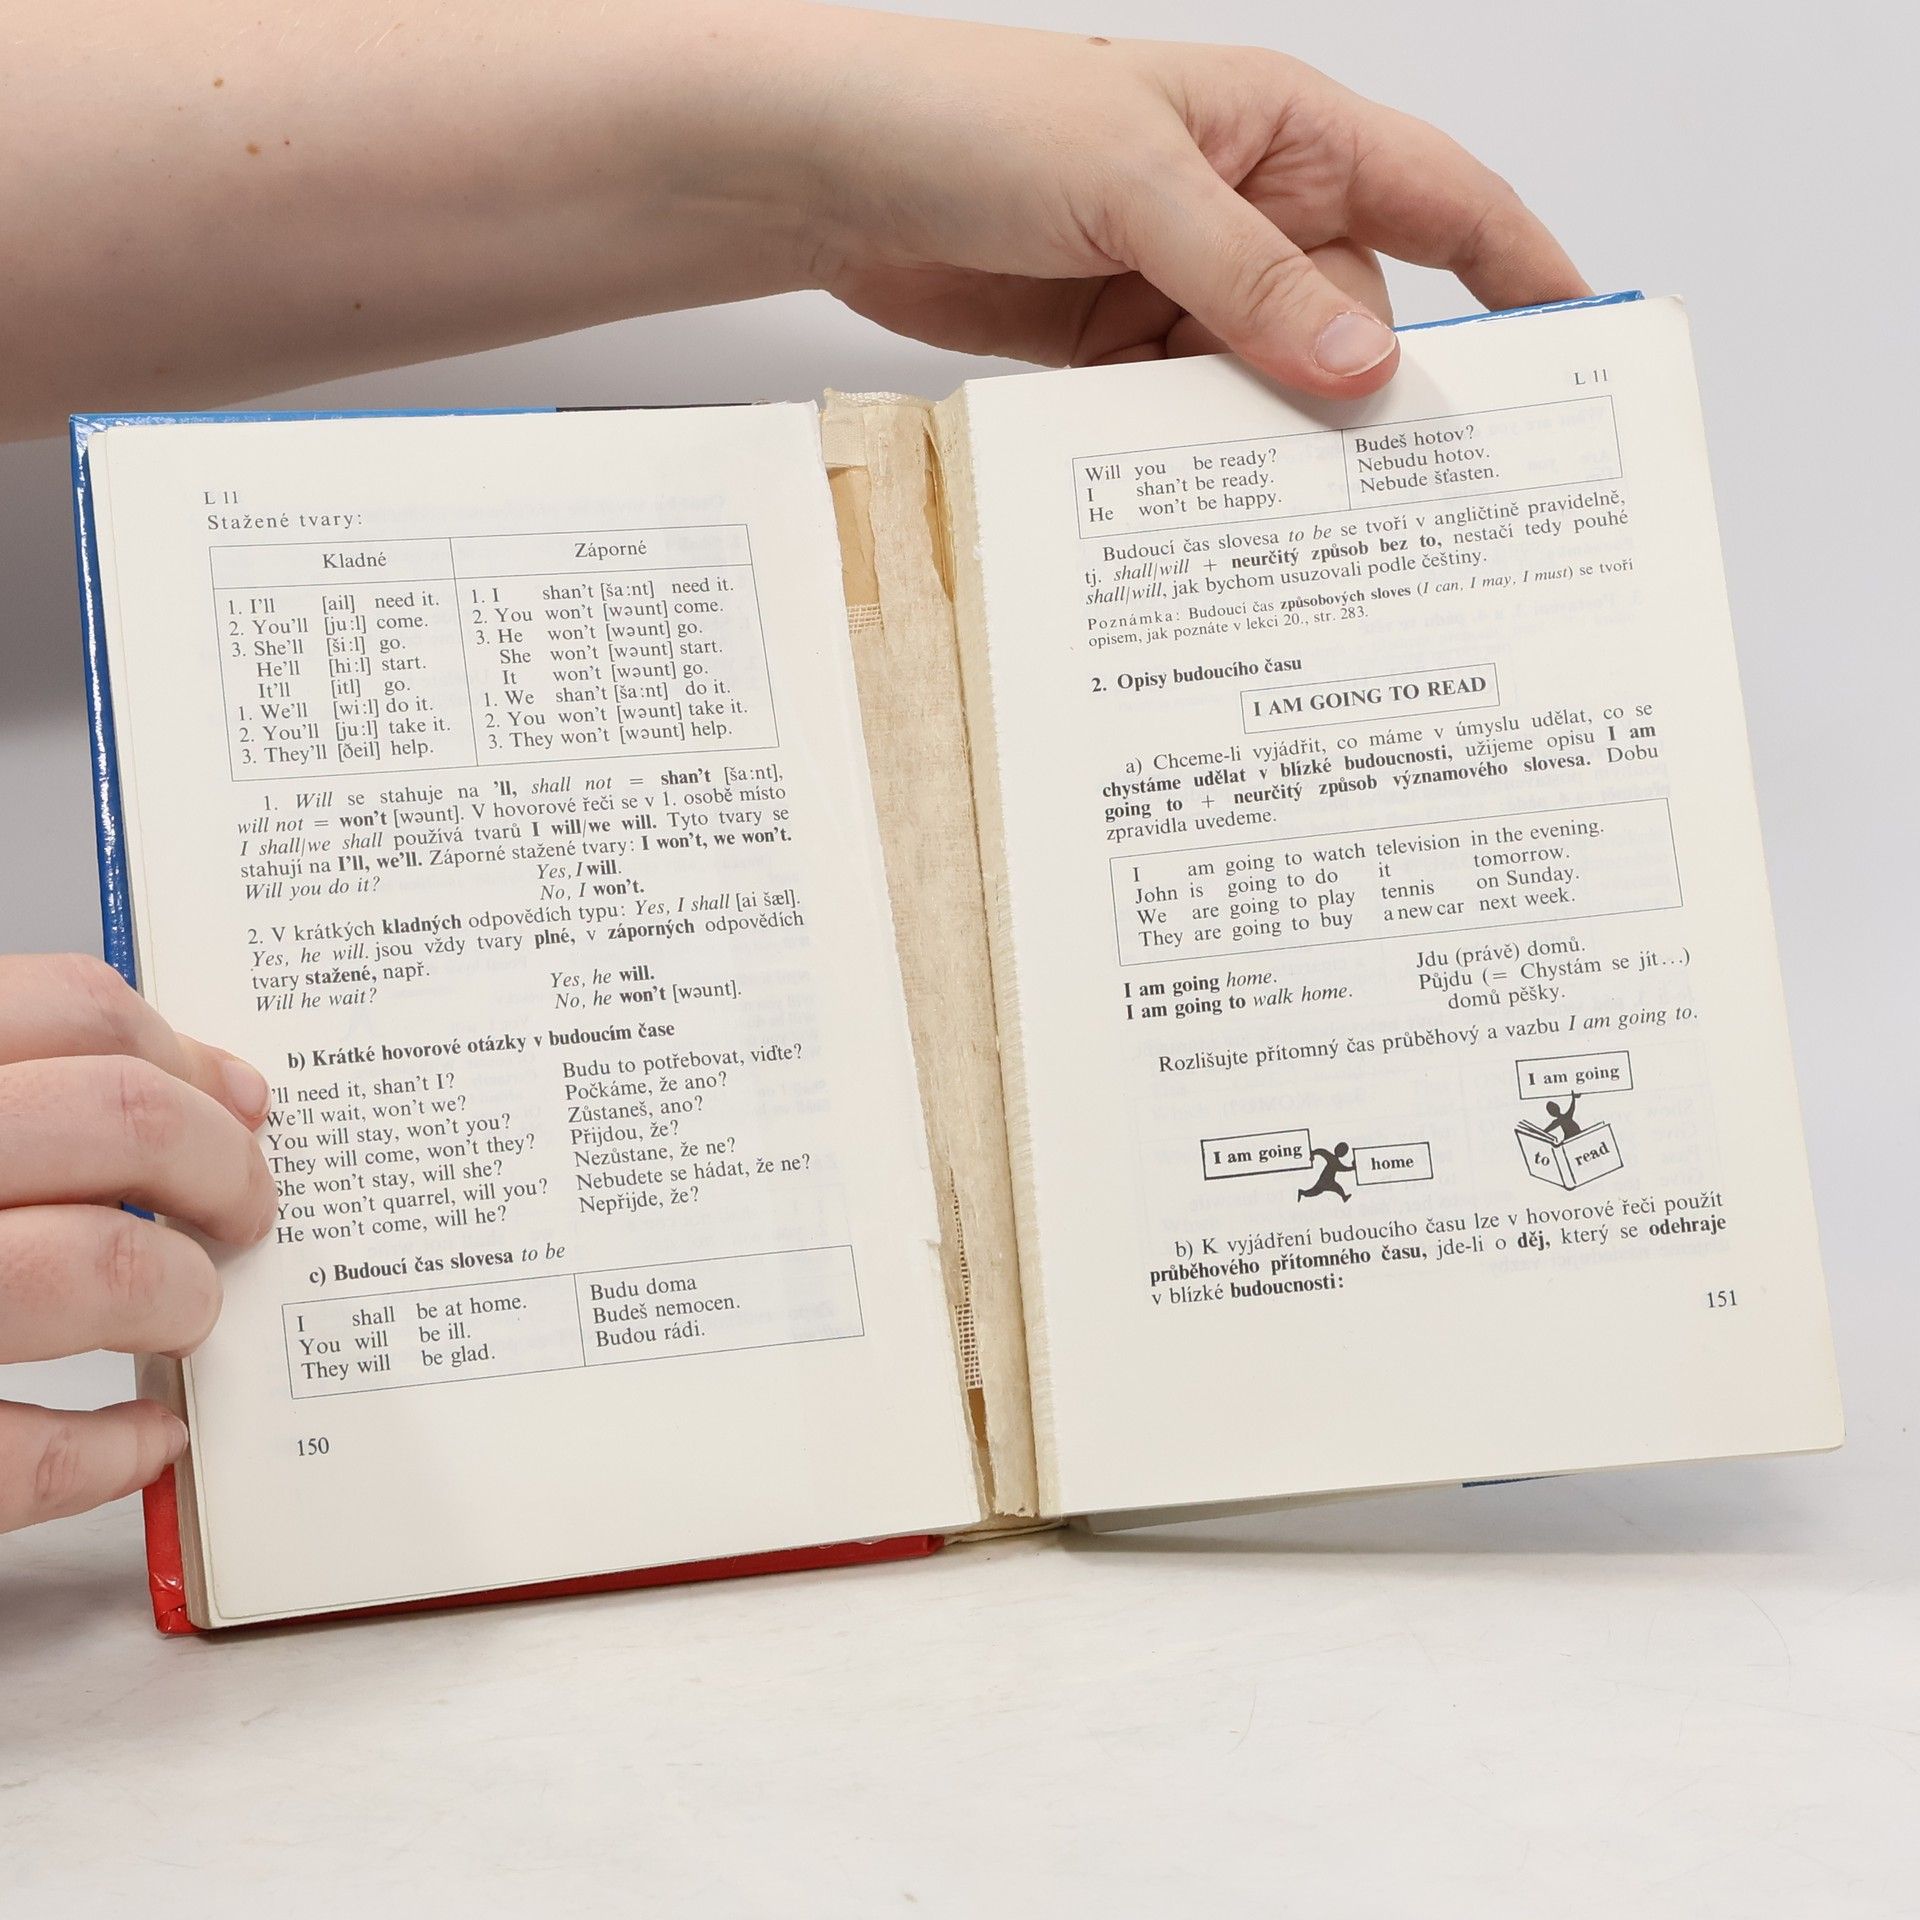 L 11
Stažené tvary:
Kladné Záporné
1. I'll [ail] need it. 1. I shan't [ša:nt] need it.
2. You'll [ju:l] come. 2. You won't [wəunt] come.
3. She'll [ši:l] go. 3. He won't [wəunt] go.
He'll [hi:l] start. She won't [wəunt] start.
It'll [itl] go. It won't [wəunt] go.
1. We'll [wi:l] do it. 1. We shan't [ša:nt] do it.
2. You'll [ju:l] take it. 2. You won't [wəunt] take it.
3. They'll [ðeil] help. 3. They won't [wəunt] help.
1. Will se stahuje na 'll, shall not = shan't [ša:nt],
will not = won't [wəunt]. V hovorové řeči se v 1. osobě místo
I shall/we shall používá tvarů I will/we will. Tyto tvary se
stahují na I'll, we'll. Záporné stažené tvary: I won't, we won't.
Will you do it? Yes, I will.
No, I won't.
2. V krátkých kladných odpovědích typu: Yes, I shall [ai šæl].
Yes, he will. jsou vždy tvary plné, v záporných odpovědích
tvary stažené, např.
Will he wait? Yes, he will.
No, he won't [wəunt].
b) Krátké hovorové otázky v budoucím čase
'll need it, shan't I? Budu to potřebovat, viďte?
We'll wait, won't we? Počkáme, že ano?
You will stay, won't you? Zůstaneš, ano?
They will come, won't they? Přijdou, že?
She won't stay, will she? Nezůstane, že ne?
You won't quarrel, will you? Nebudete se hádat, že ne?
He won't come, will he? Nepřijde, že?
c) Budoucí čas slovesa to be
I shall be at home. Budu doma
You will be ill. Budeš nemocen.
They will be glad. Budou rádi.
150
L 11
Will you be ready? Budeš hotov?
I shan't be ready. Nebudu hotov.
He won't be happy. Nebude šťasten.
Budoucí čas slovesa to be se tvoří v angličtině pravidelně,
tj. shall/will + neurčitý způsob bez to, nestačí tedy pouhé
shall/will, jak bychom usuzovali podle češtiny.
Poznámka: Budoucí čas způsobových sloves (I can, I may, I must) se tvoří
opisem, jak poznáte v lekci 20., str. 283.
2. Opisy budoucího času
I AM GOING TO READ
a) Chceme-li vyjádřit, co máme v úmyslu udělat, co se
chystáme udělat v blízké budoucnosti, užijeme opisu I am
going to + neurčitý způsob významového slovesa. Dobu
zpravidla uvedeme.
I am going to watch television in the evening.
John is going to do it tomorrow.
We are going to play tennis on Sunday.
They are going to buy a new car next week.
I am going home. Jdu (právě) domů.
I am going to walk home. Půjdu (= Chystám se jít...)
domů pěšky.
Rozlišujte přítomný čas průběhový a vazbu I am going to.
I am going home
I am going
to read
b) K vyjádření budoucího času lze v hovorové řeči použít
průběhového přítomného času, jde-li o děj, který se odehraje
v blízké budoucnosti:
151